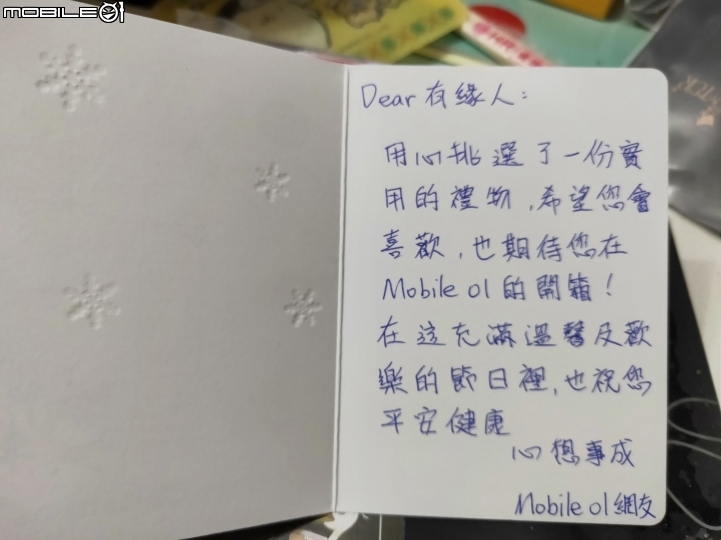 MOBILE01
Dear 有緣人：
用心挑選了一份實
用的禮物，希望您會
喜歡，也期待您在
Mobile 01 的開箱！
在這充滿溫馨及歡
樂的節日裡，也祝您
平安健康
心想事成
Mobile 01 網友